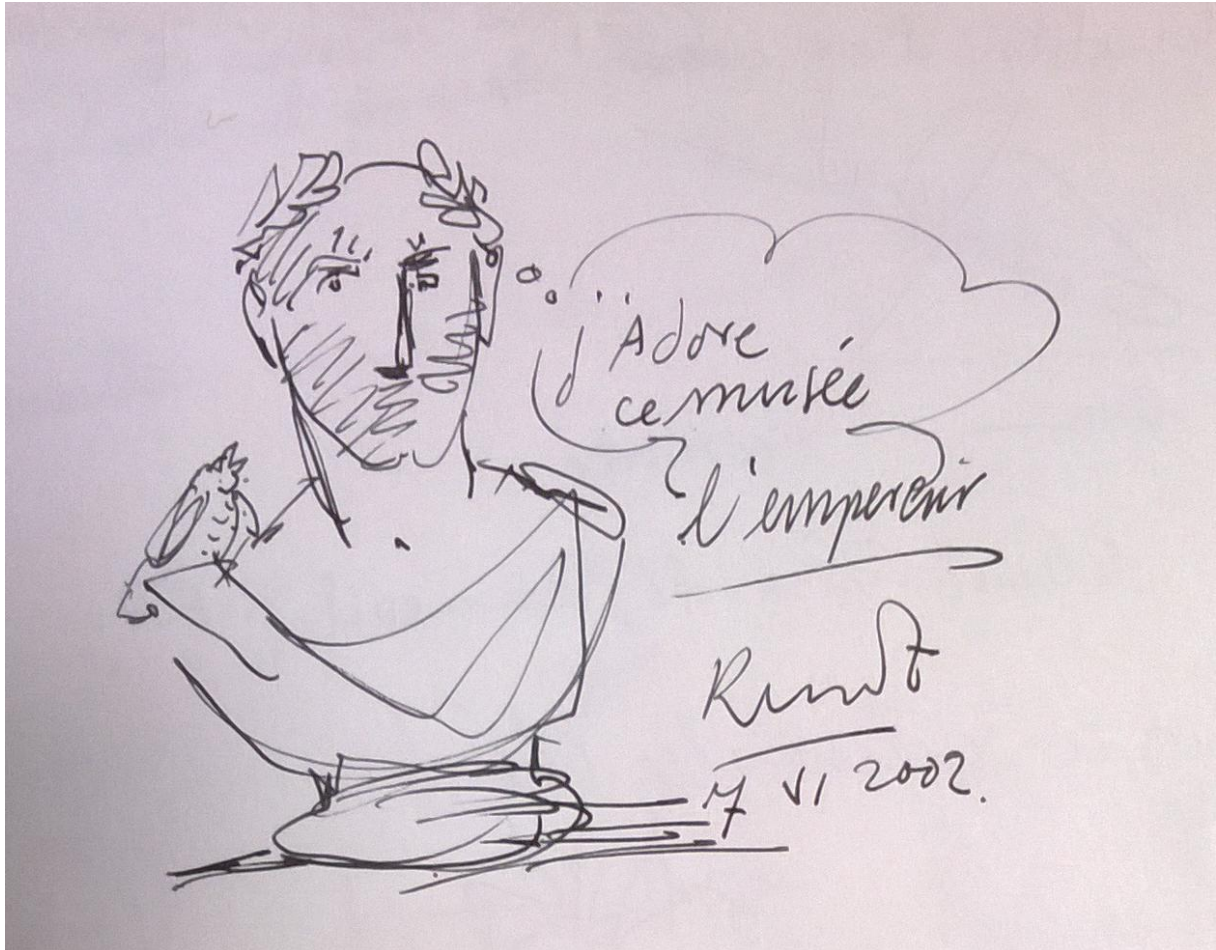 j'Adore
ce musée
l'empereur
7 VI 2002.